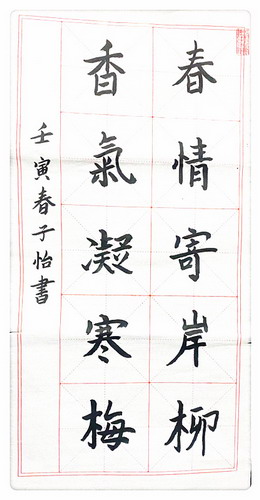 春情寄岸柳
香氣凝寒梅
壬寅春子怡書